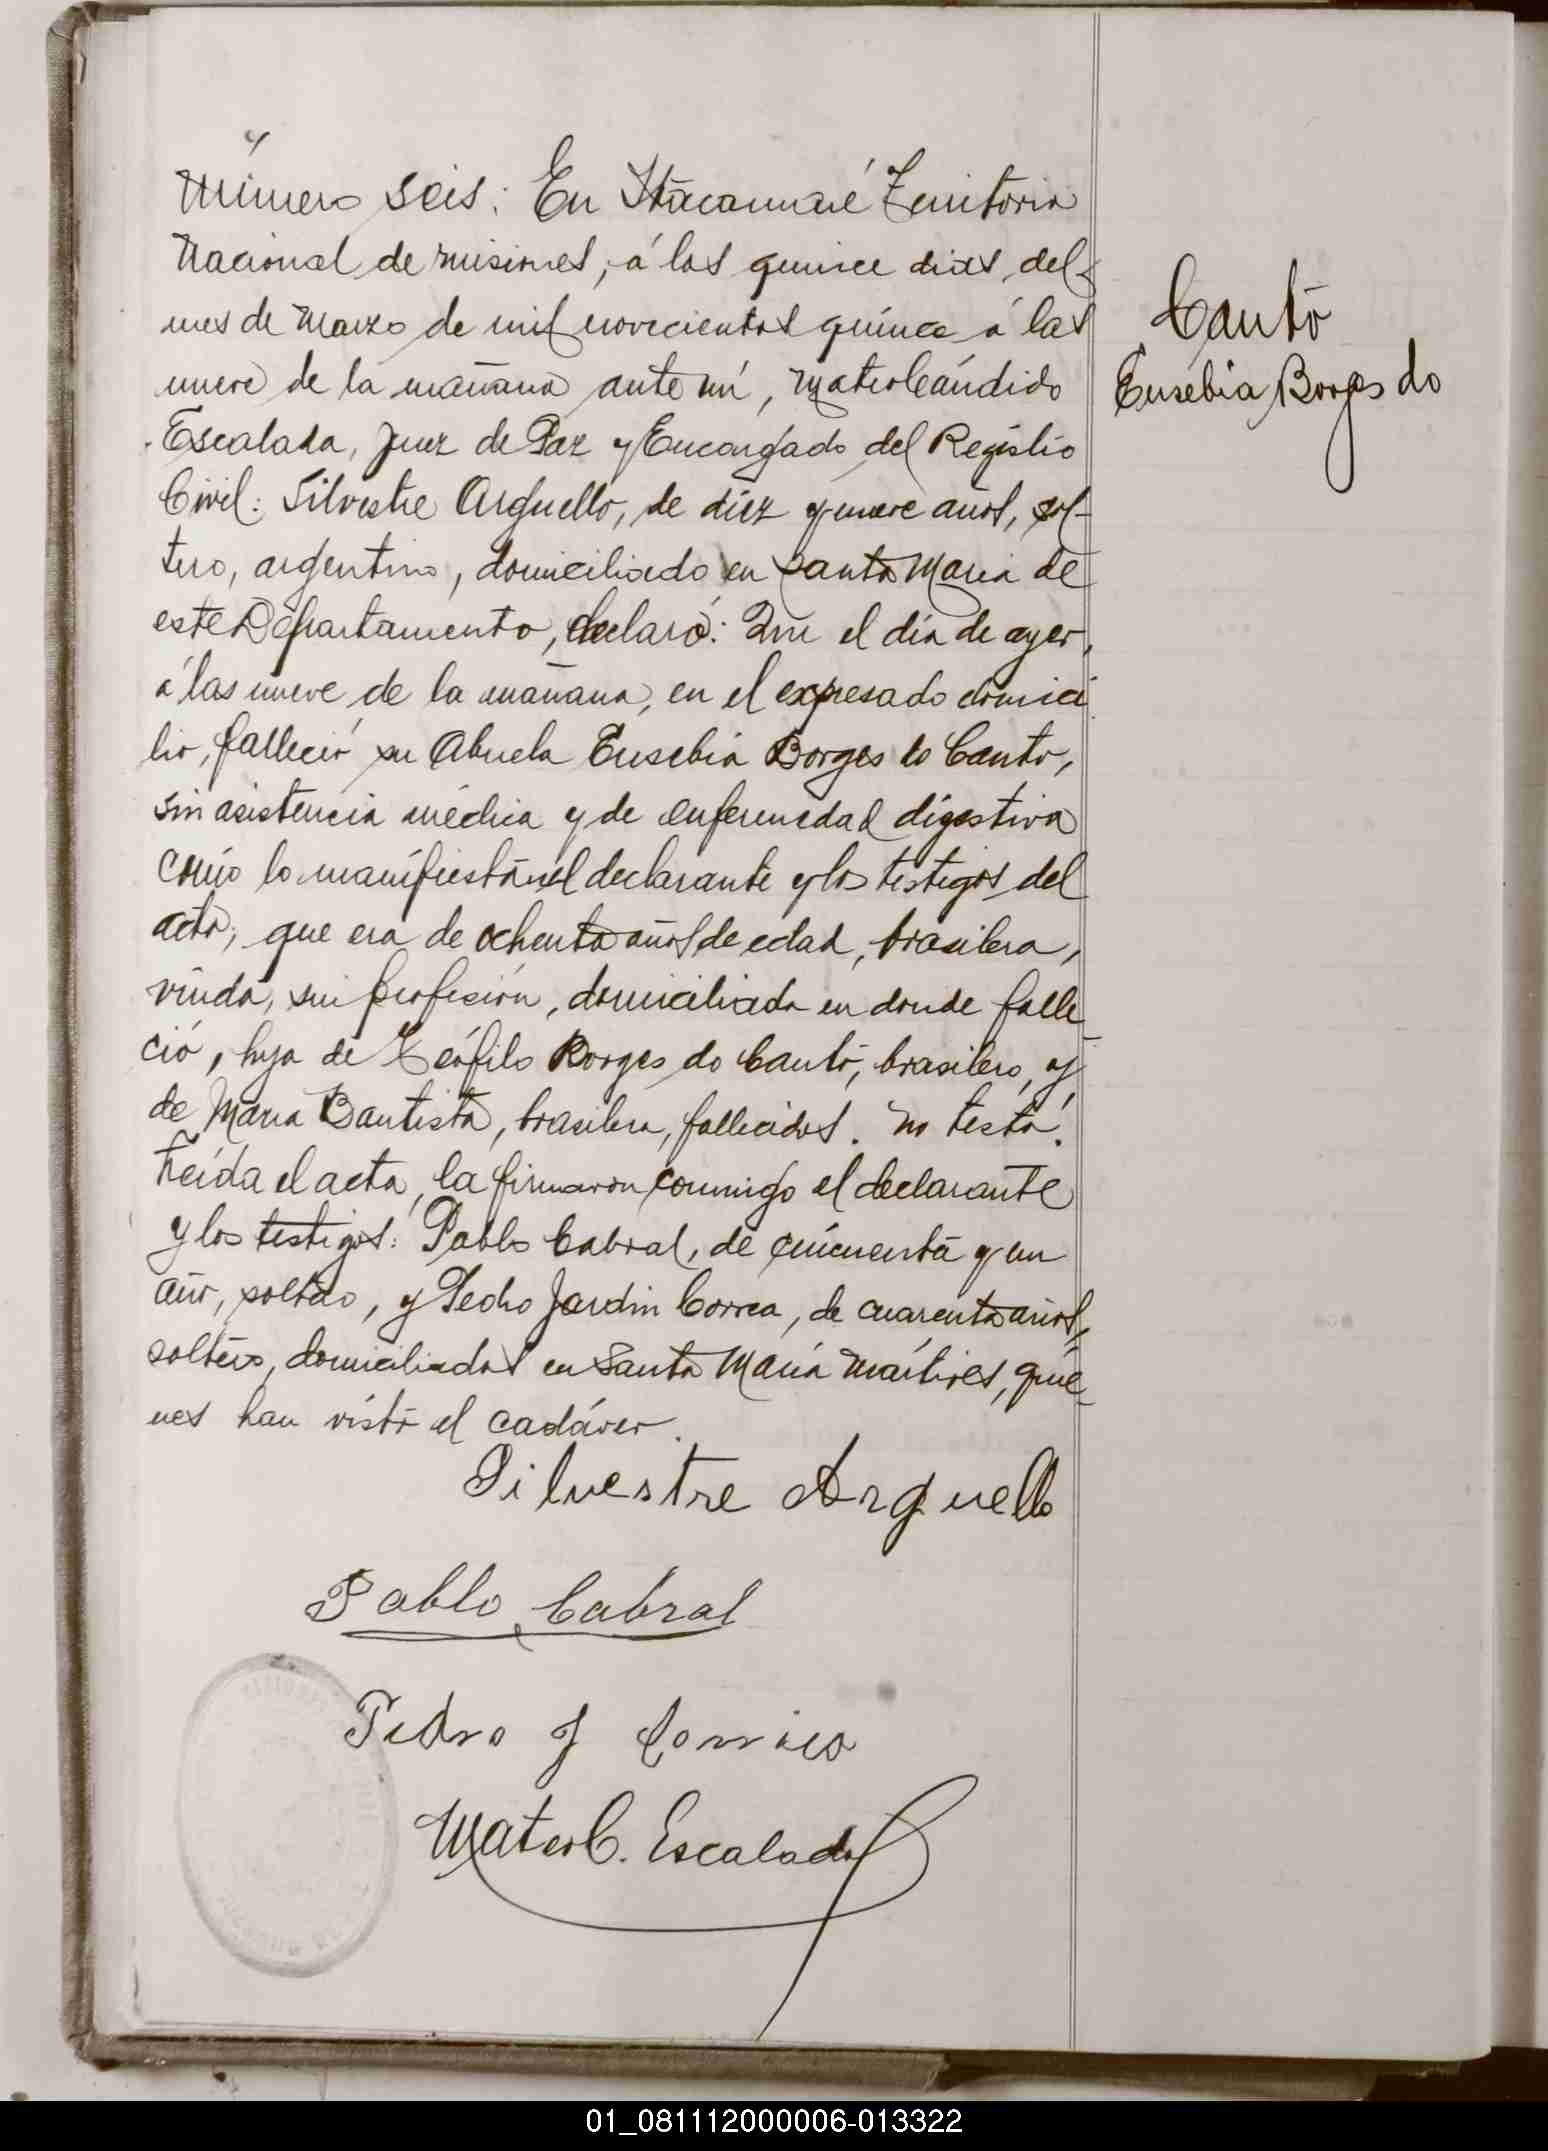 Número seis: En Itacaruaré Territorio
Nacional de misiones, á los quince dias del
mes de Marzo de mil novecientos quince á las
nueve de la mañana ante mí, Mateo Cándido
Escalada, Juez de Paz y Encargado del Registro
Civil: Silvestre Arguello, de diez y nueve años, sol-
tero, argentino, domiciliado en Santa Maria de
este Departamento, declaró: Que el día de ayer,
á las nueve de la mañana, en el expresado domici
lio, falleció su Abuela Eusebia Borges do Canto,
sin asistencia médica y de enfermedad digestiva
como lo manifiestan el declarante y los testigos del
acto; que era de ochenta años de edad, brasilera,
viuda, sin profesión, domiciliada en donde falle-
ció, hija de Teófilo Borges do Canto, brasilero, y
de Maria Bautista, brasilera, fallecidos. No testó.
Leída el acta, la firmaron conmigo el declarante
y los testigos: Pablo Cabral, de cincuenta y un
año, soltero, y Pedro Jardin Correa, de cuarenta años,
soltero, domiciliados en Santa María Mártires, quie-
nes han visto el cadáver.
Silvestre Arguello
Pablo Cabral
Pedro J Correa
Mateo C. Escalada
Canto
Eusebia Borges do
01_081112000006-013322